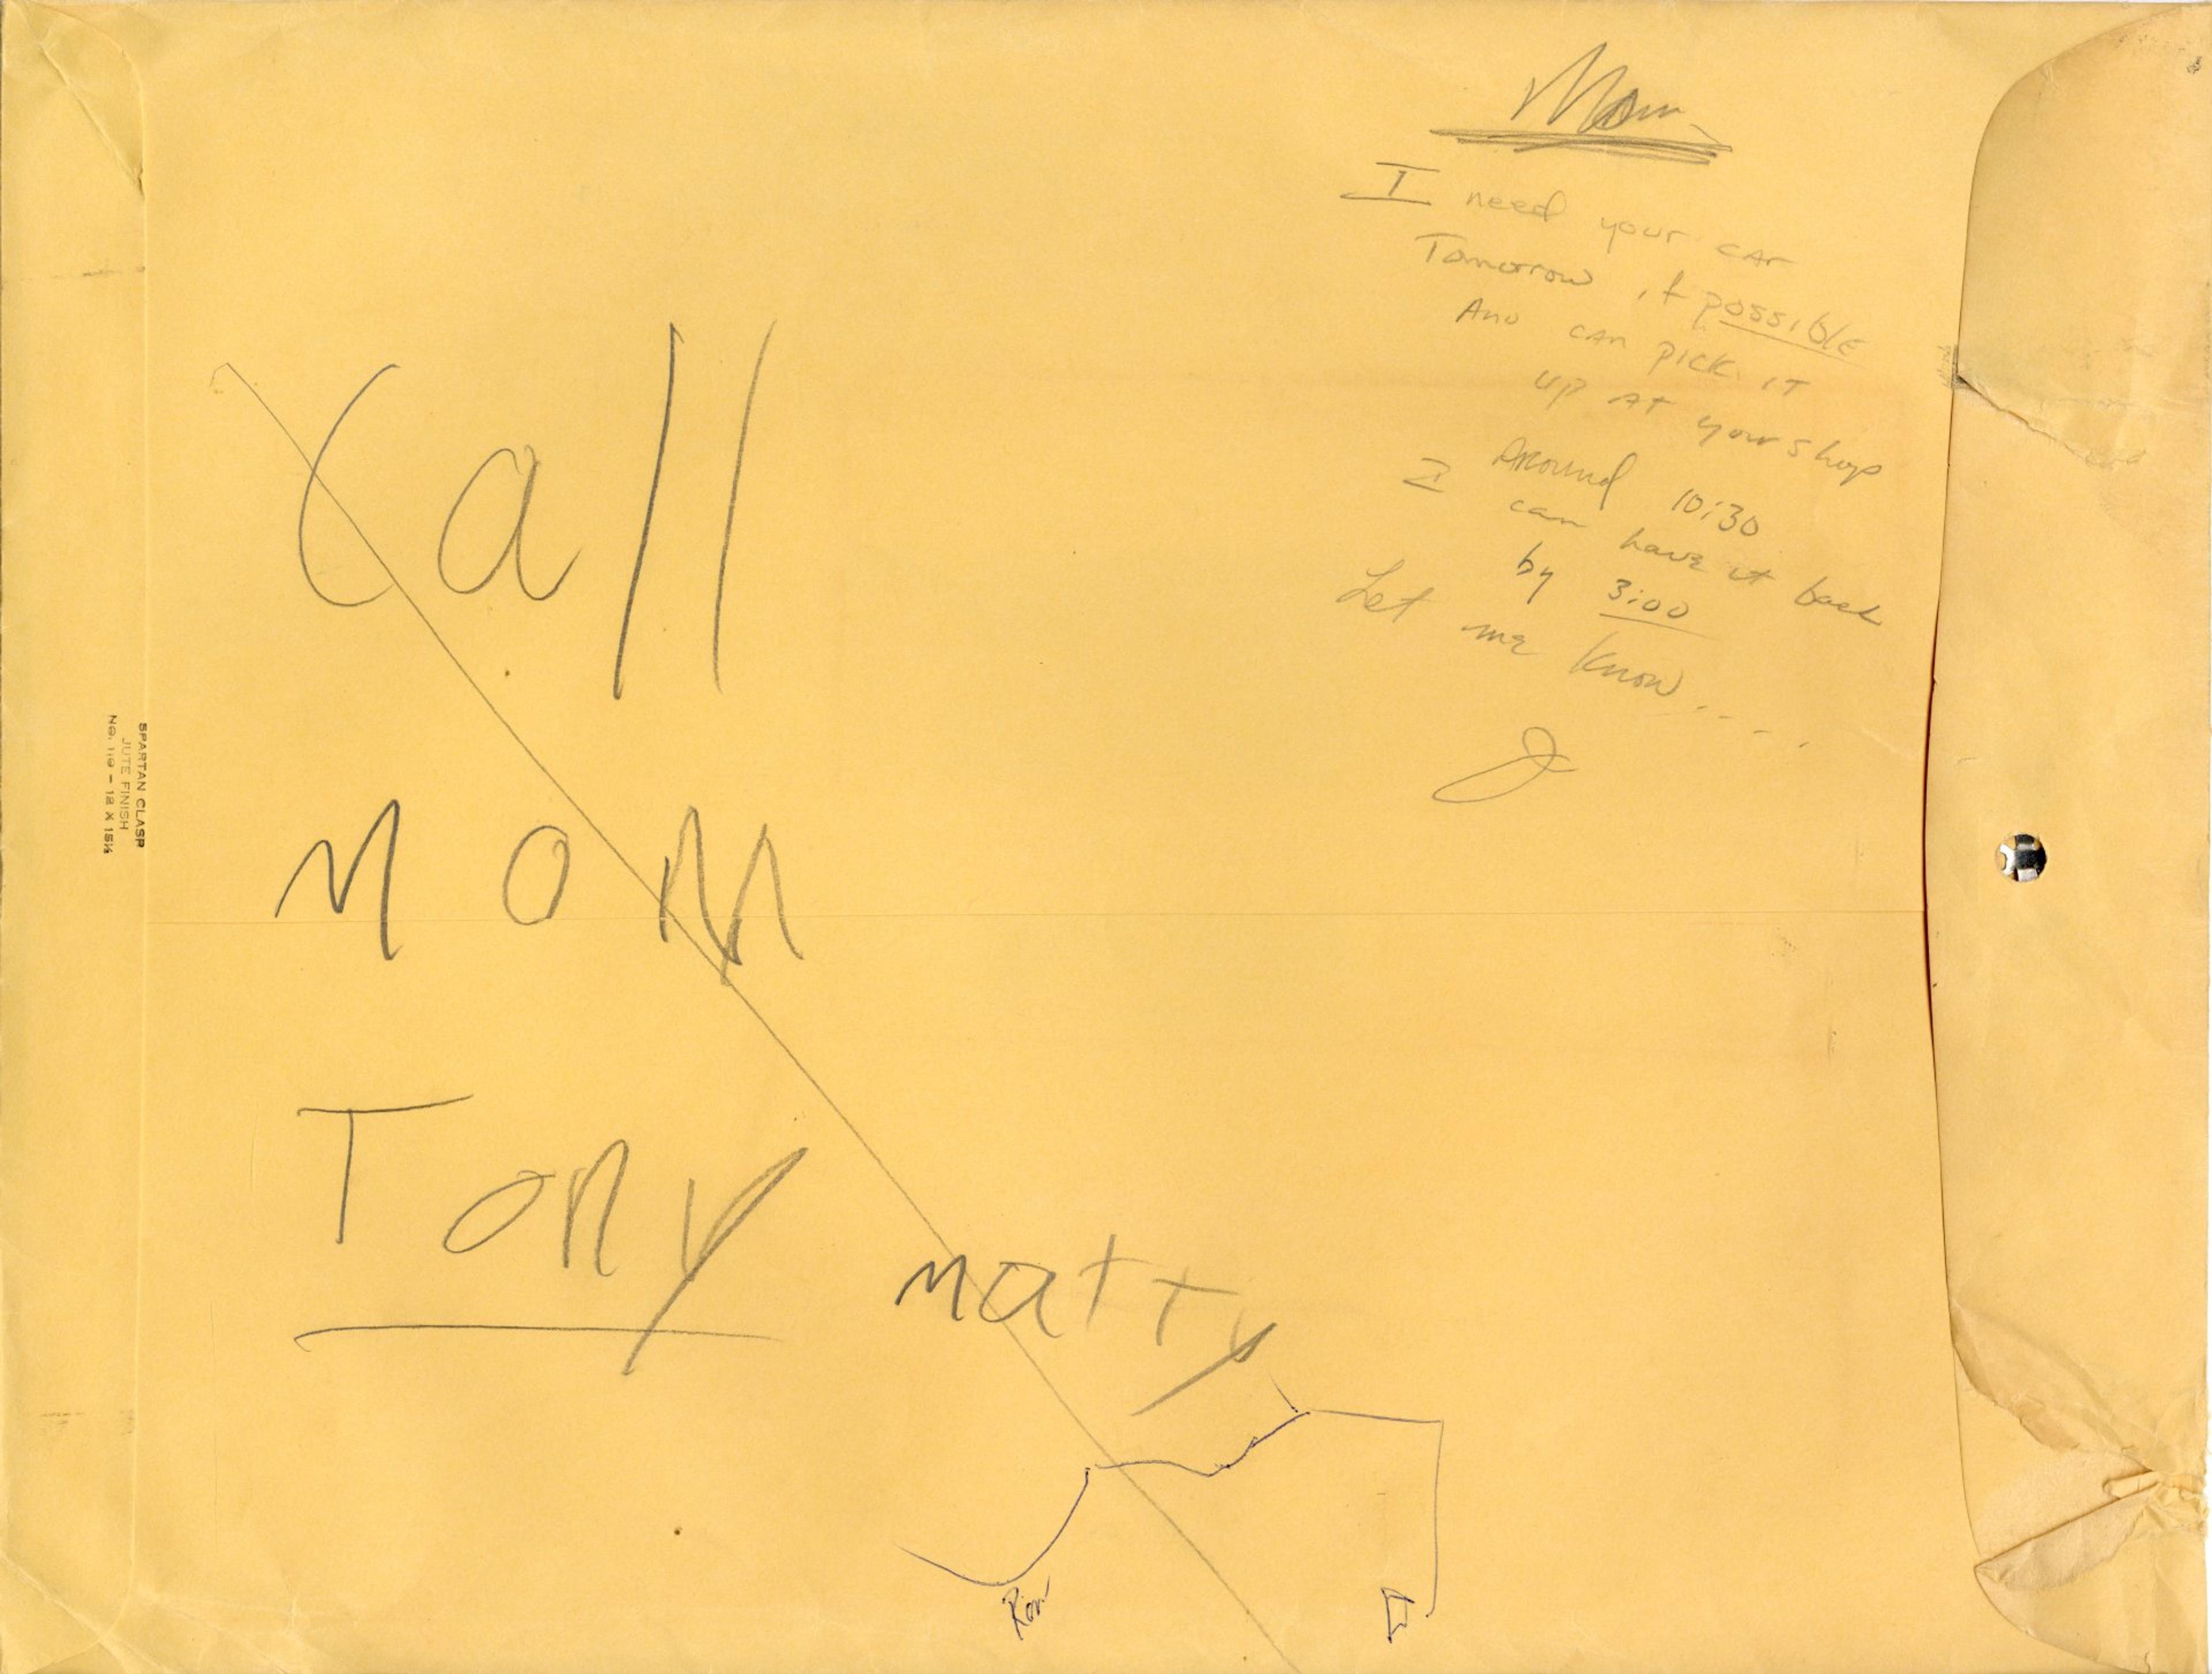 Mom
I need your car
Tomorrow if possible
And can pick it
up at your shop
Around 10:30
I can have it back
by 3:00
Let me know....
J
Call
MOM
Tony
matty
SPARTAN CLASP
JUTE FINISH
No. 110 - 12 X 15½